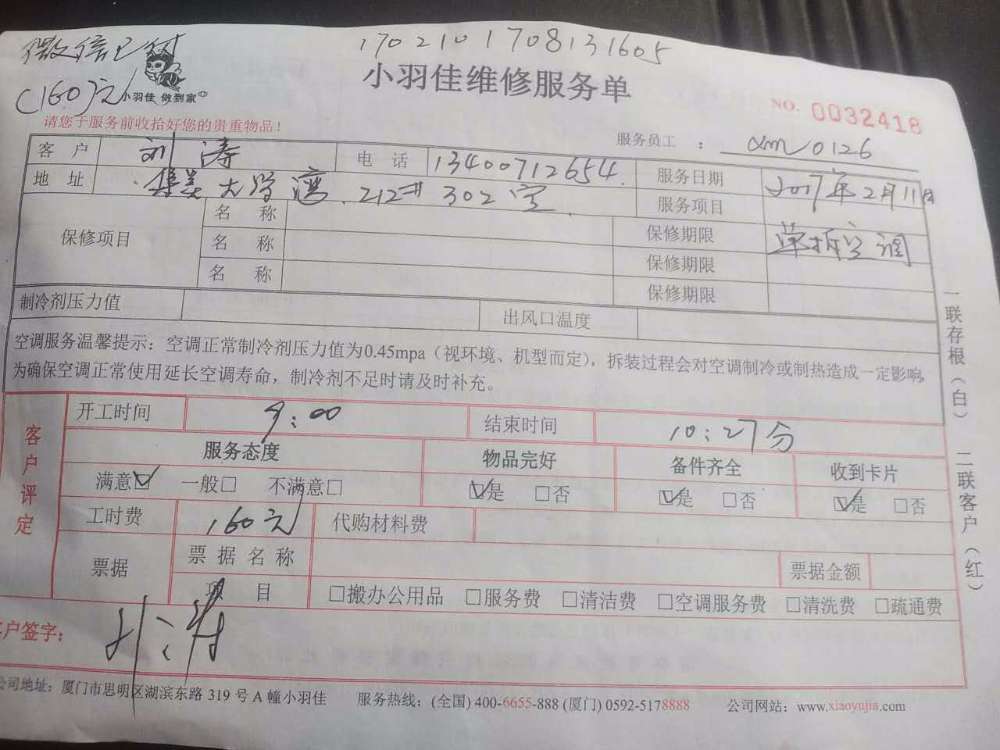 微信已付
1702101708131605
(160元)
小羽佳 做到家
小羽佳维修服务单
NO. 0032418
请您于服务前收拾好您的贵重物品！
服务员工 ： xm0126
客 户 刘涛 电 话 13400712654 服务日期 2017年2月11日
地 址 集美大学湾 212# 302室 服务项目 单拆空调
保修项目 名 称 保修期限
名 称 保修期限
名 称 保修期限
制冷剂压力值 出风口温度
空调服务温馨提示：空调正常制冷剂压力值为0.45mpa（视环境、机型而定），拆装过程会对空调制冷或制热造成一定影响，
为确保空调正常使用延长空调寿命，制冷剂不足时请及时补充。
客户评定
开工时间 9:00 结束时间 10:27分
服务态度 物品完好 备件齐全 收到卡片
满意☑ 一般□ 不满意□ ☑是 □否 ☑是 □否 ☑是 □否
工时费 160元 代购材料费
票据 票据名称 票据金额
项 目 □搬办公用品 □服务费 □清洁费 □空调服务费 □清洗费 □疏通费
客户签字： 刘涛
公司地址：厦门市思明区湖滨东路 319 号 A 幢小羽佳 服务热线：(全国) 400-6655-888 (厦门) 0592-5178888 公司网站：www.xiaoyujia.com
一联存根（白） 二联客户（红）